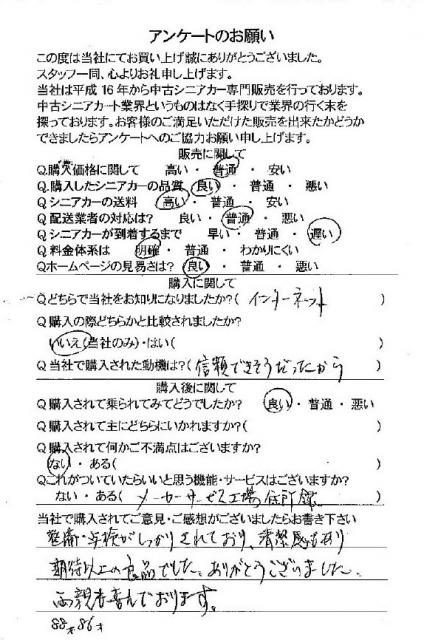 アンケートのお願い
この度は当社にてお買い上げ誠にありがとうございました。
スタッフ一同、心よりお礼申し上げます。
当社は平成16年から中古シニアカー専門販売を行っております。
中古シニアカート業界というものはなく手探りで業界の行く末を
探っております。お客様のご満足いただけた販売を出来たかどうか
できましたらアンケートへのご協力お願い申し上げます。
販売に関して
Q.購入価格に関して 高い・普通・安い
Q.購入したシニアカーの品質 良い・普通・悪い
Q シニアカーの送料 高い・普通・安い
Q 配送業者の対応は? 良い・普通・悪い
Q シニアカーが到着するまで 早い・普通・遅い
Q 料金体系は 明確・普通・わかりにくい
Qホームページの見易さは? 良い・普通・悪い
購入に関して
Qどちらで当社をお知りになりましたか?(インターネット)
Q 購入の際どちらかと比較されましたか?
いいえ(当社のみ)・はい( )
Q 当社で購入された動機は?(信頼できそうだったから)
購入後に関して
Q 購入されて乗られてみてどうでしたか? 良い・普通・悪い
Q 購入されて主にどちらにいかれますか?( )
Q 購入されて何かご不満点はございますか?
ない・ある( )
Qこれがついていたらいいと思う機能・サービスはございますか?
ない・ある(メーカーサービス工場住所録)
当社で購入されてご意見・ご感想がございましたらお書き下さい
整備・点検がしっかりされており、清潔感もあり
期待以上の良品でした。ありがとうございました。
両親も喜んでおります。
88才86才